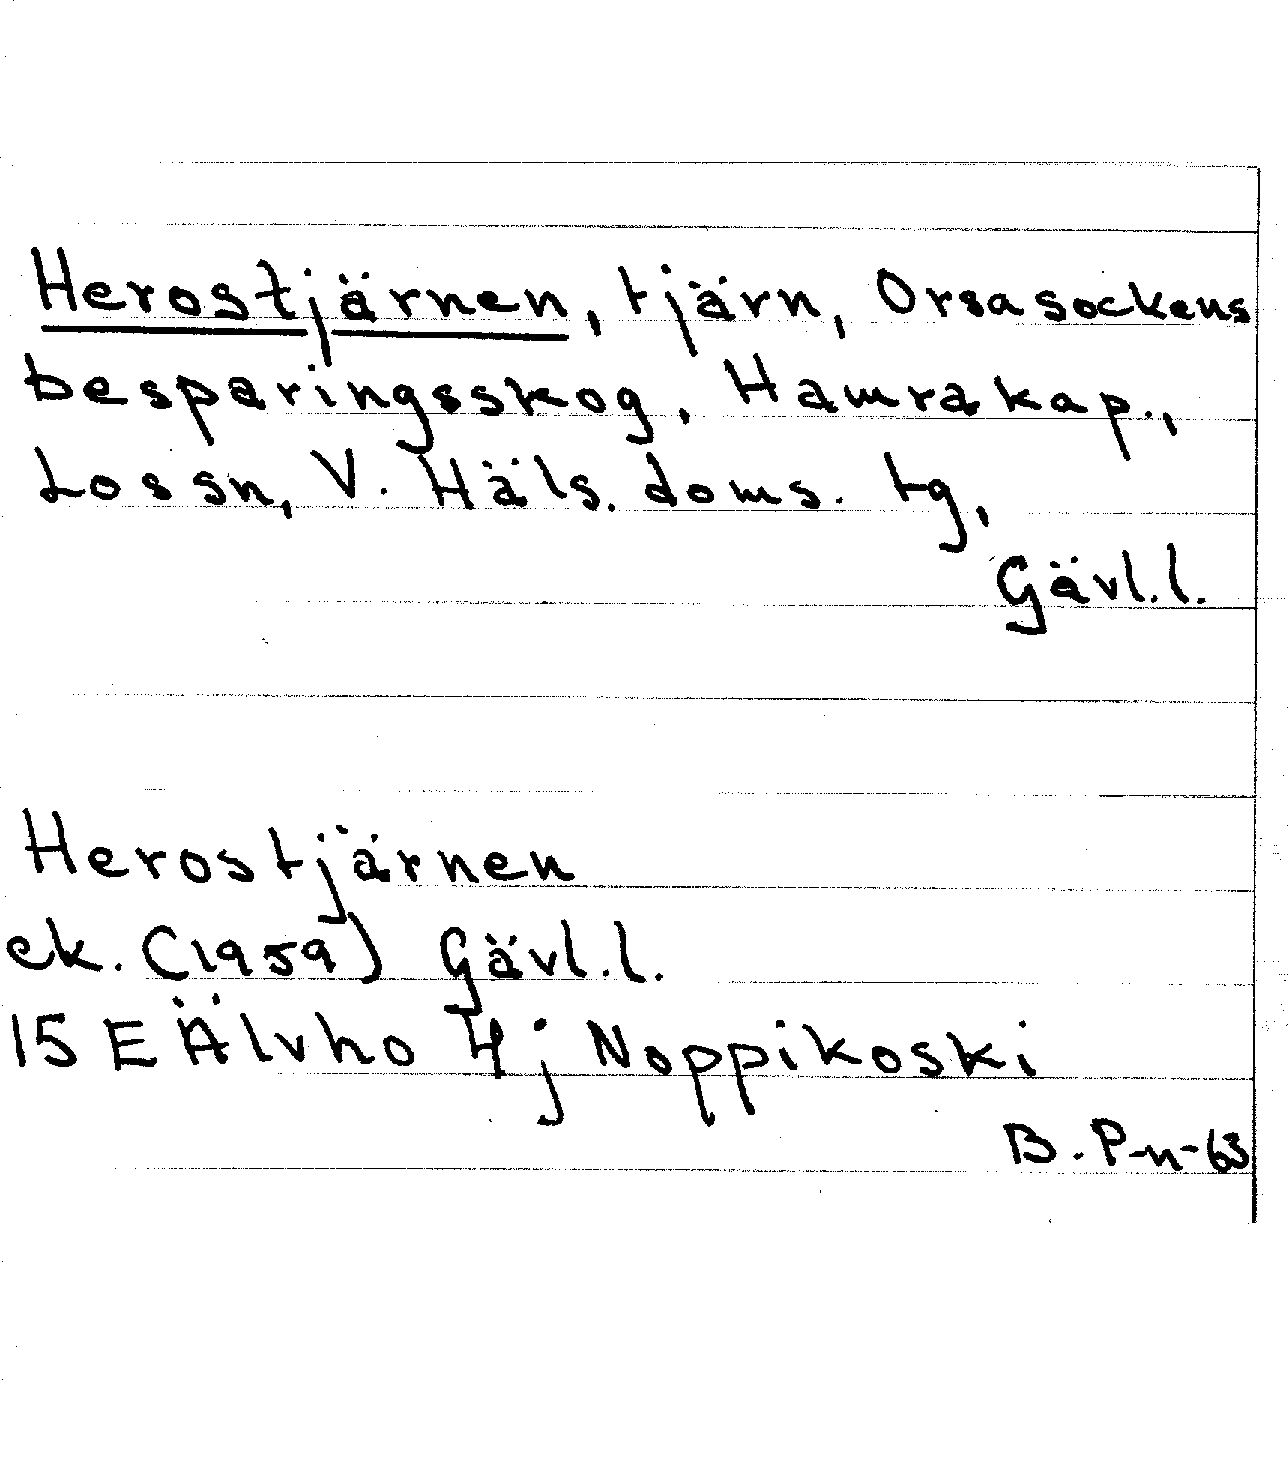 Herostjärnen, tjärn, Orsasockens
besparingsskog, Hamrakap.,
Lossn, V. Häls. doms. tg,
Gävl.l.
Herostjärnen
ek. (1959) Gävl.l.
15 E Älvho 4j Noppikoski
B. P-n-63